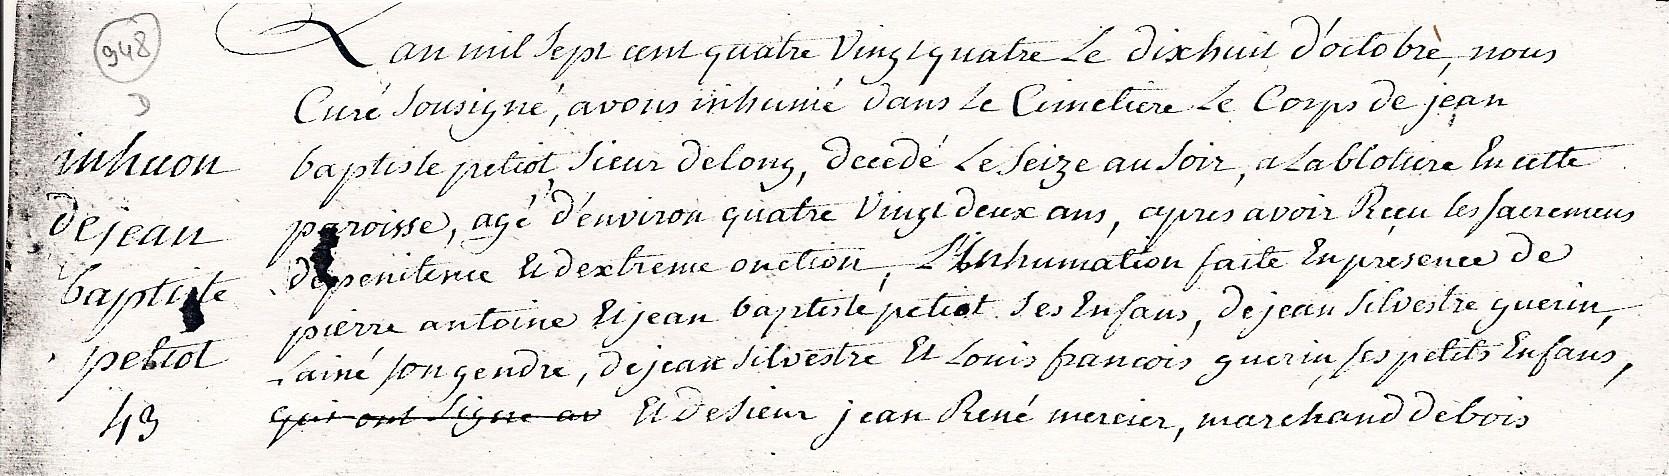 948
D
inhuon
de jean
baptiste
petiot
43
L an mil Sept cent quatre Vingt quatre Le dixhuit d'octobre, nous
Curé Sousigné, avons inhumé dans Le Cimetiere Le Corps de jean
baptiste petiot, Sieur Delong, decedé Le Seize au Soir, a Lablotiere En cette
paroisse, agé d'environ quatre Vingt deux ans, apres avoir Reçu les sacremens
de penitence Et dextreme onction, L'Inhumation faite En presence de
pierre antoine Et jean baptiste petiot Ses Enfans, de jean Silvestre guerin,
Lainé son gendre, de jean Silvestre Et Louis francois guerin, ses petits Enfans,
qui ont Signé av Et de Sieur jean René mercier, marchand de bois